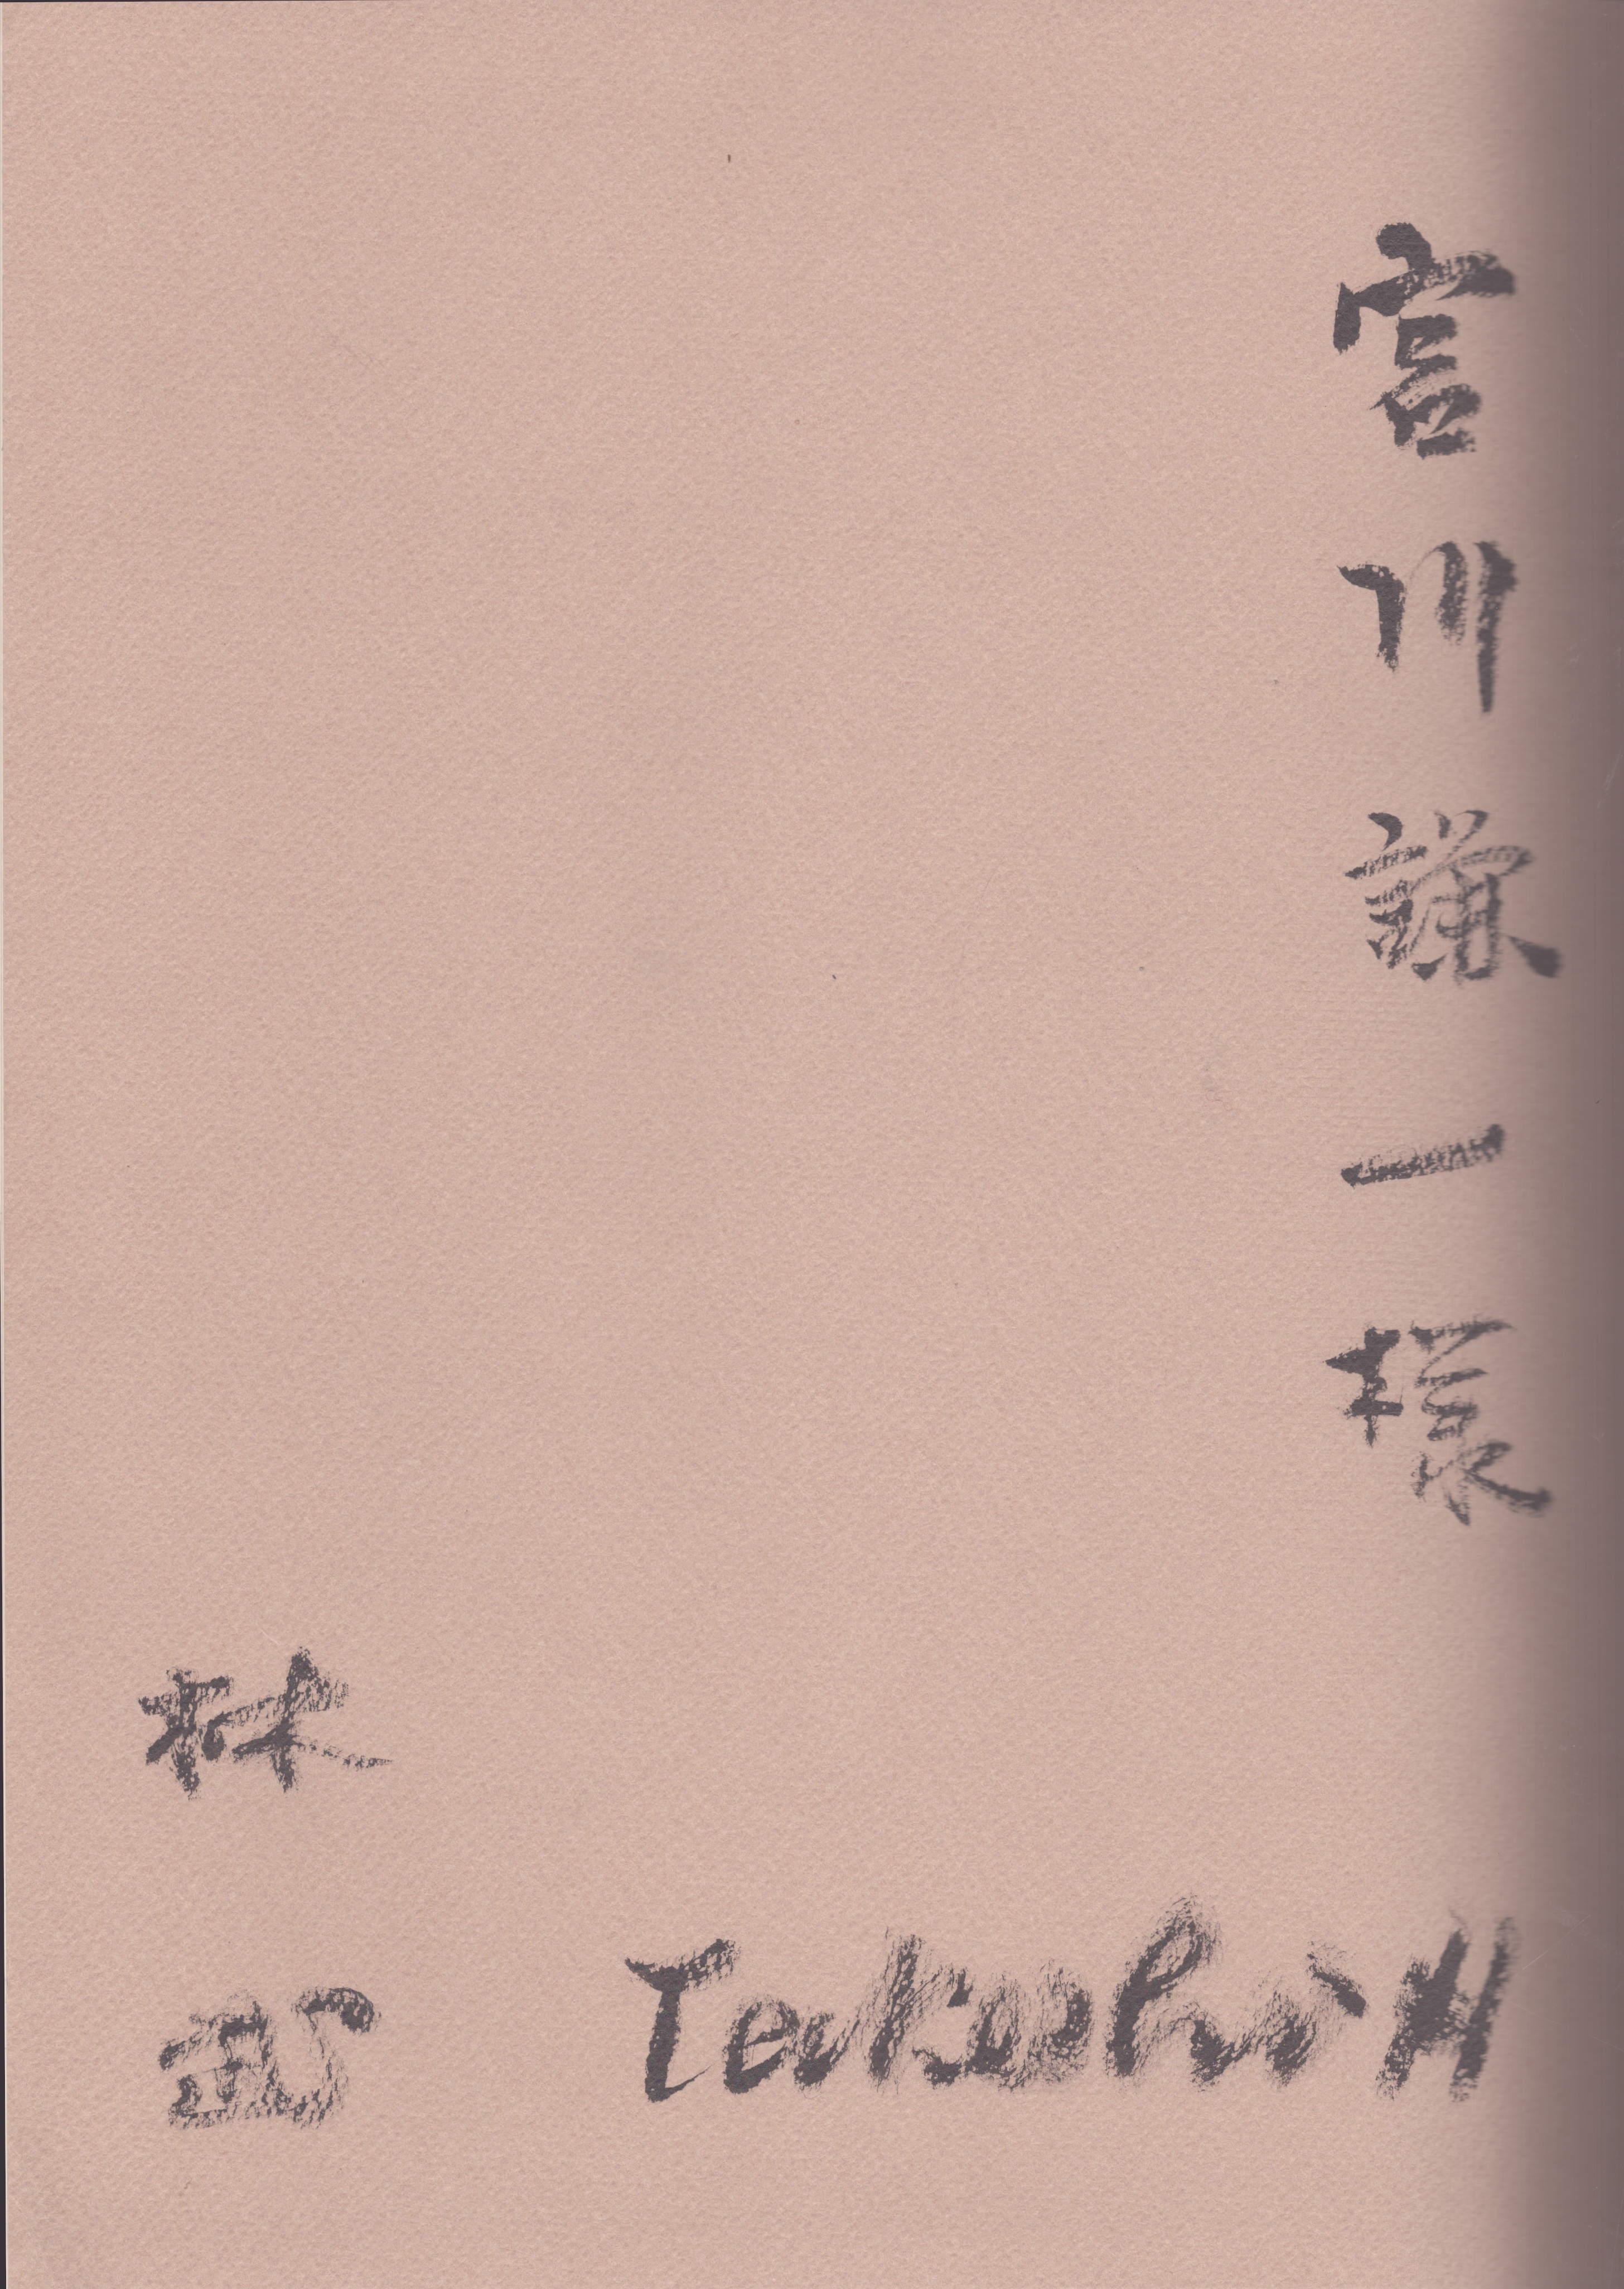 宮川謙一様
林武
Takeshi H